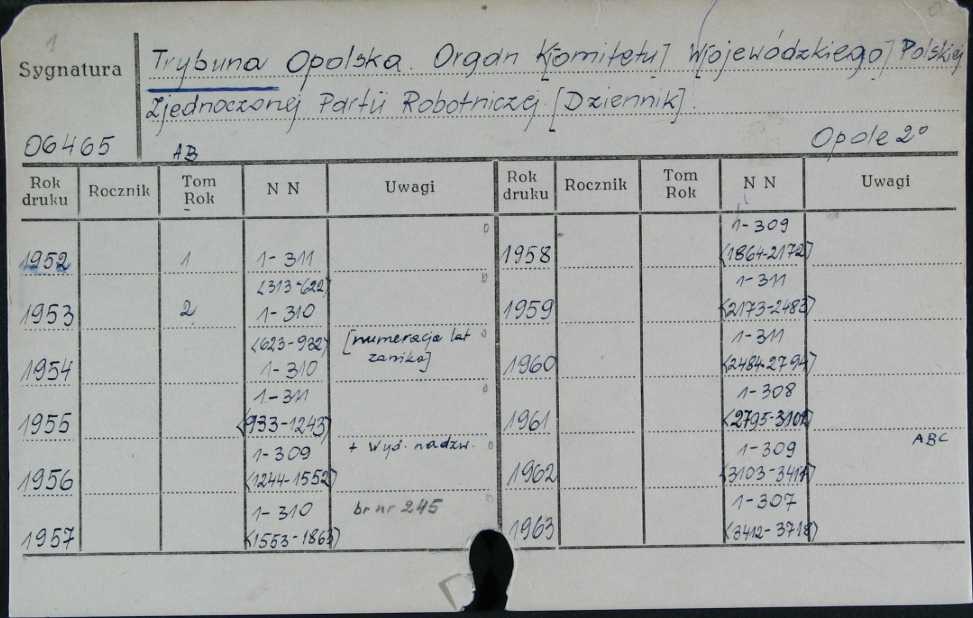 1
Sygnatura
Trybuna Opolska. Organ K[omitetu] W[ojewódzkiego] Polskiej
Zjednoczonej Partii Robotniczej. [Dziennik].
06465
AB
Opole 2°
Rok druku Rocznik Tom Rok N N Uwagi Rok druku Rocznik Tom Rok N N Uwagi
1952 1 1-311
1953 2 <313-622> 1-310
1954 <623-932> 1-310 [numeracja lat zanika]
1955 1-311 <933-1243>
1956 1-309 <1244-1552> + wyd. nadzw.
1957 1-310 <1553-1863> br nr 245
1958 1-309 <1864-2172>
1959 1-311 <2173-2483>
1960 1-311 <2484-2794>
1961 1-308 <2795-3102>
ABC
1962 1-309 <3103-3411>
1963 1-307 <3412-3718>